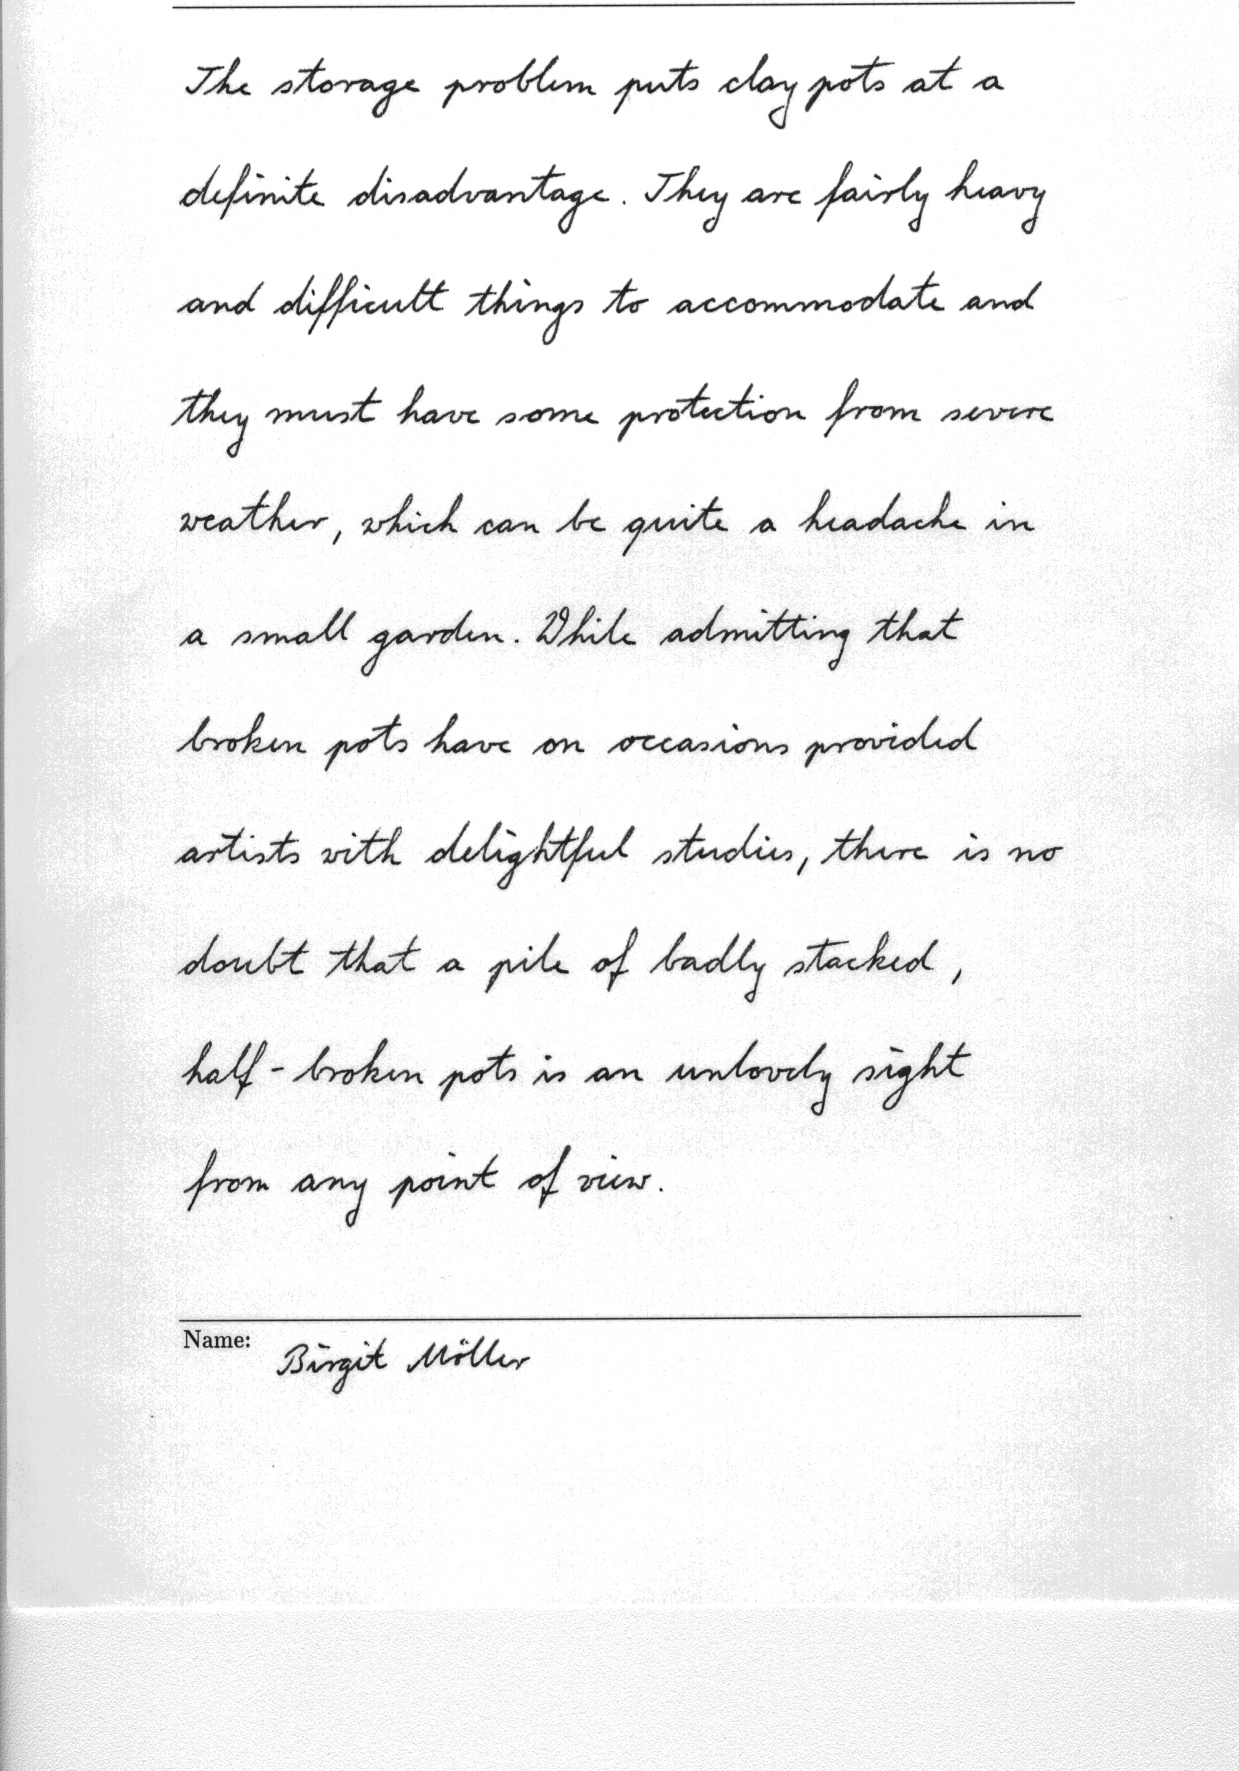 The storage problem puts clay pots at a
definite disadvantage. They are fairly heavy
and difficult things to accommodate and
they must have some protection from severe
weather, which can be quite a headache in
a small garden. While admitting that
broken pots have on occasions provided
artists with delightful studies, there is no
doubt that a pile of badly stacked,
half-broken pots is an unlovely sight
from any point of view.
Name: Birgit Möller